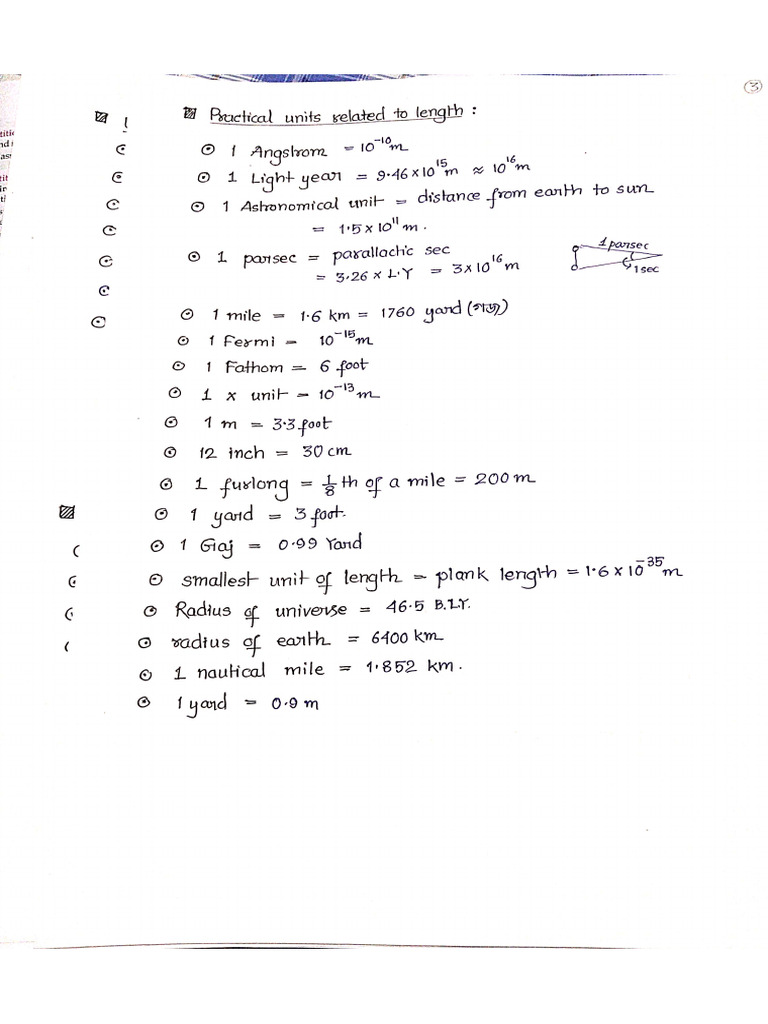 3
Practical units related to length :
1 Angstrom = 10⁻¹⁰ m
1 Light year = 9.46 × 10¹⁵ m ≈ 10¹⁶ m
1 Astronomical unit = distance from earth to sun
= 1.5 × 10¹¹ m.
1 parsec = parallactic sec
= 3.26 × L.Y = 3 × 10¹⁶ m
1 parsec
1 sec
1 mile = 1.6 km = 1760 yard (গজ)
1 Fermi = 10⁻¹⁵ m
1 Fathom = 6 foot
1 x unit = 10⁻¹³ m
1 m = 3.3 foot
12 inch = 30 cm
1 furlong = 1/8 th of a mile = 200 m
1 yard = 3 foot.
1 Gaj = 0.99 Yard
smallest unit of length = plank length = 1.6 × 10⁻³⁵ m
Radius of universe = 46.5 B.L.Y.
radius of earth = 6400 km
1 nautical mile = 1.852 km.
1 yard = 0.9 m